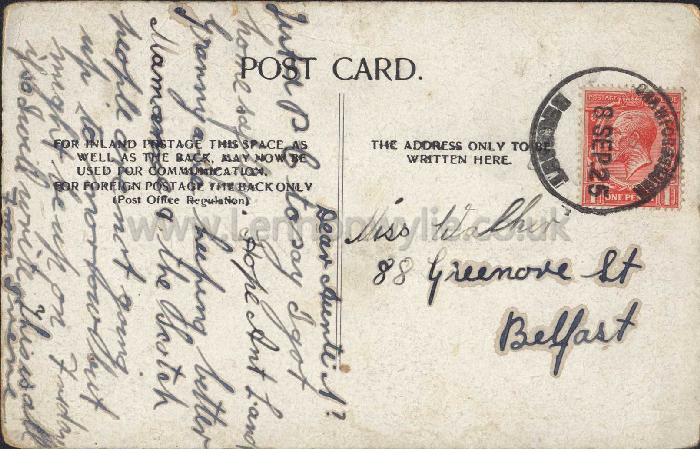 POST CARD.
FOR INLAND POSTAGE THIS SPACE, AS
WELL AS THE BACK, MAY NOW BE
USED FOR COMMUNICATION.
FOR FOREIGN POSTAGE THE BACK ONLY
(Post Office Regulation)
THE ADDRESS ONLY TO BE
WRITTEN HERE.
8 SEP 25
POSTAGE
ONE PENNY
Miss Walker
88 Greenore St
Belfast
Dear Auntie A?
Just a P.C. to say I got
home safe. Hope Ant L and
Granny are keeping better
Mamand & the Scotch
people are not going
up to morrow but
might be up on Friday
if so I will write this is all
from Irene
www.Lennonwylie.co.uk